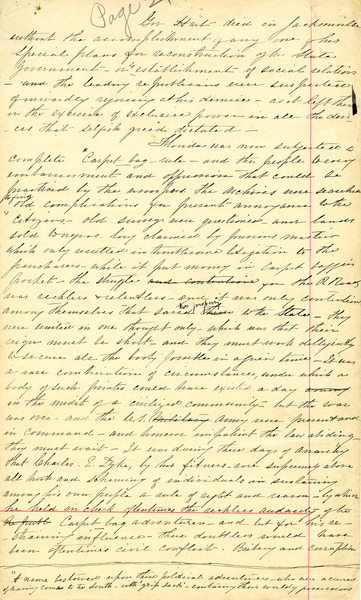 Page 2
Gov Hart died in Jacksonville
without the accomplishment of any one of his
special plans for reconstruction of the State
Government - or establishment of social relations
- and the leading republicans were suspected
of inwardly rejoicing at his demise - as it left them
in the exercise of exclusive power in all the devi-
ces that selfish greed dictated -
Florida was now subjected to
complete "Carpet bag" rule - and the people to every
embarrassment and oppression that could be
practiced by the usurpers the archives were searched
for old complications for present annoyance to the
Citizens - old surveys were questioned and lands
sold to negroes long claimed by previous
which only resulted in troublesome litigation to the
purchasers while it put money in Carpet baggers
pocket. the struggle and contentions for the R Roads
was reckless & relentless - and it was only contention
among themselves that saved to the State - they
were united in one thought only - which was that their
reign must be short - and they must work diligently
to secure all the booty possible in a given time - It was
a rare combination of circumstances under which a
body of such pirates could have existed a day among
in the midst of a civilized community - but the war
was over - and the U.S. Military army were present and
in command - and however impatient the law abiding
they must wait - It was during these days of anarchy
that Charles E. Dyke, by his fitness rose supremely above
all both and scheming of individuals in sustaining
among his own people a rule of right and reason - by whom
he held in check oftentimes the reckless audacity of the
Carpet bag adventurers - and but for his re-
straining influence - there doubtless would have
been oftentimes civil conflict. Bribery and corruption
"A name bestowed upon these political adventurers - who were accused
of having comes to the South with "grip sack" containing their worldly possessions